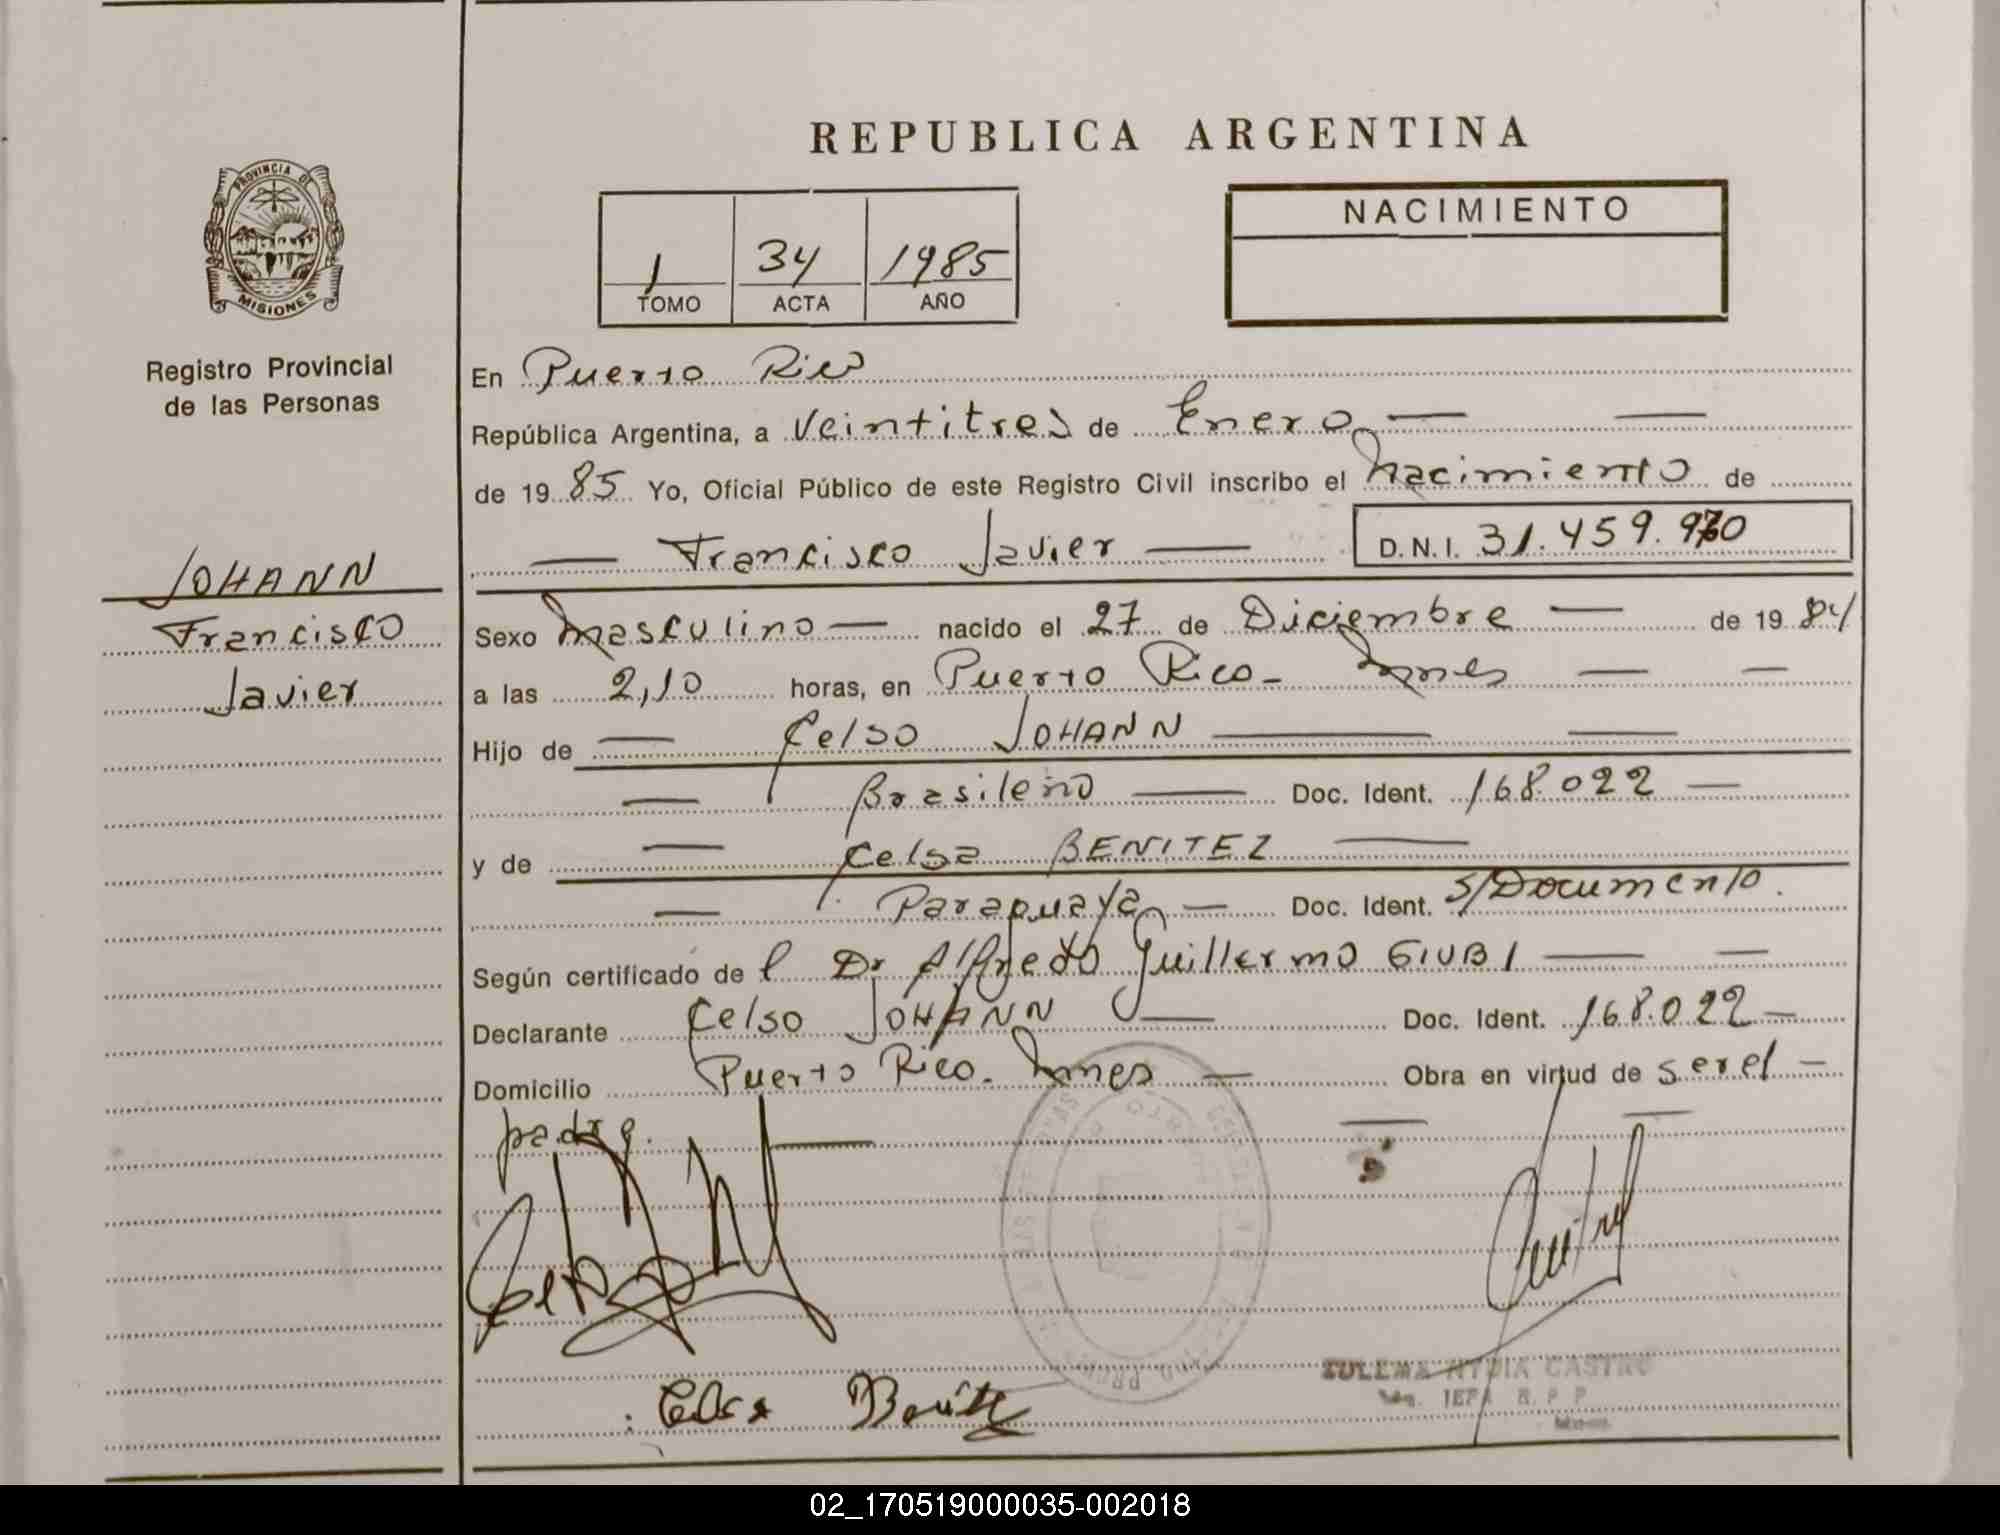 REPUBLICA ARGENTINA
PROVINCIA DE
MISIONES
Registro Provincial
de las Personas
1 34 1985
TOMO ACTA AÑO
NACIMIENTO
JOHANN
Francisco
Javier
En Puerto Rico
República Argentina, a Veintitres de Enero
de 1985 Yo, Oficial Público de este Registro Civil inscribo el Nacimiento de
Francisco Javier D.N.I. 31.459.970
Sexo Masculino nacido el 27 de Diciembre de 1984
a las 2,10 horas, en Puerto Rico - Mnes
Hijo de Celso JOHANN
Brasileño Doc. Ident. 168.022
y de Celsa BENITEZ
Paraguaya Doc. Ident. S/Documento.
Según certificado de l Dr Alfredo Guillermo GIUBI
Declarante Celso JOHANN Doc. Ident. 168.022
Domicilio Puerto Rico - Mnes Obra en virtud de ser el
padre.
Celsa Benitez
ZULEMA NYDIA CASTRO
02_170519000035-002018